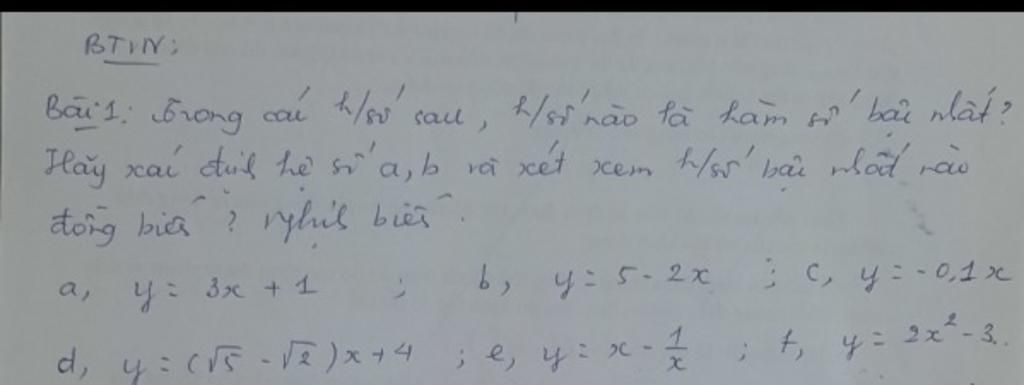 BTVN:
Bài 1: Trong các h/số sau, h/số nào là hàm số bậc nhất?
Hãy xác định hệ số a, b và xét xem h/số bậc nhất nào
đồng biến? nghịch biến.
a, y = 3x + 1 ; b, y = 5 - 2x ; c, y = -0,1x
d, y = (√5 - √2)x + 4 ; e, y = x - 1/x ; f, y = 2x² - 3.